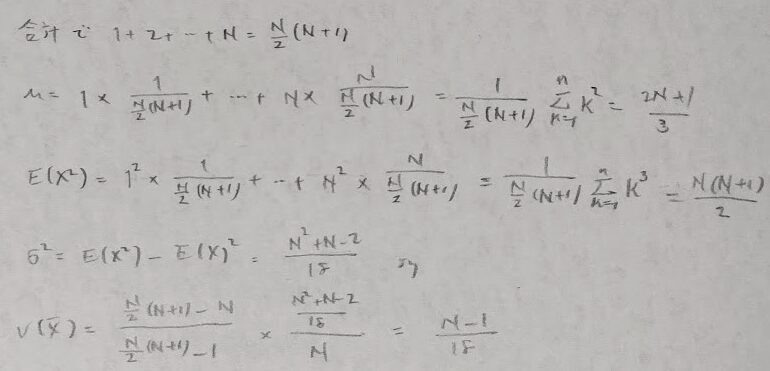 合計で 1+2+…+N = N/2 (N+1)
μ = 1 × 1/(N/2 (N+1)) + … + N × N/(N/2 (N+1)) = 1/(N/2 (N+1)) Σ_{k=1}^{n} k² = (2N+1)/3
E(X²) = 1² × 1/(N/2 (N+1)) + … + N² × N/(N/2 (N+1)) = 1/(N/2 (N+1)) Σ_{k=1}^{n} k³ = N(N+1)/2
σ² = E(X²) − E(X)² = (N²+N−2)/18 より
V(X̄) = (N/2 (N+1) − N)/(N/2 (N+1) − 1) × ((N²+N−2)/18)/N = (N−1)/18